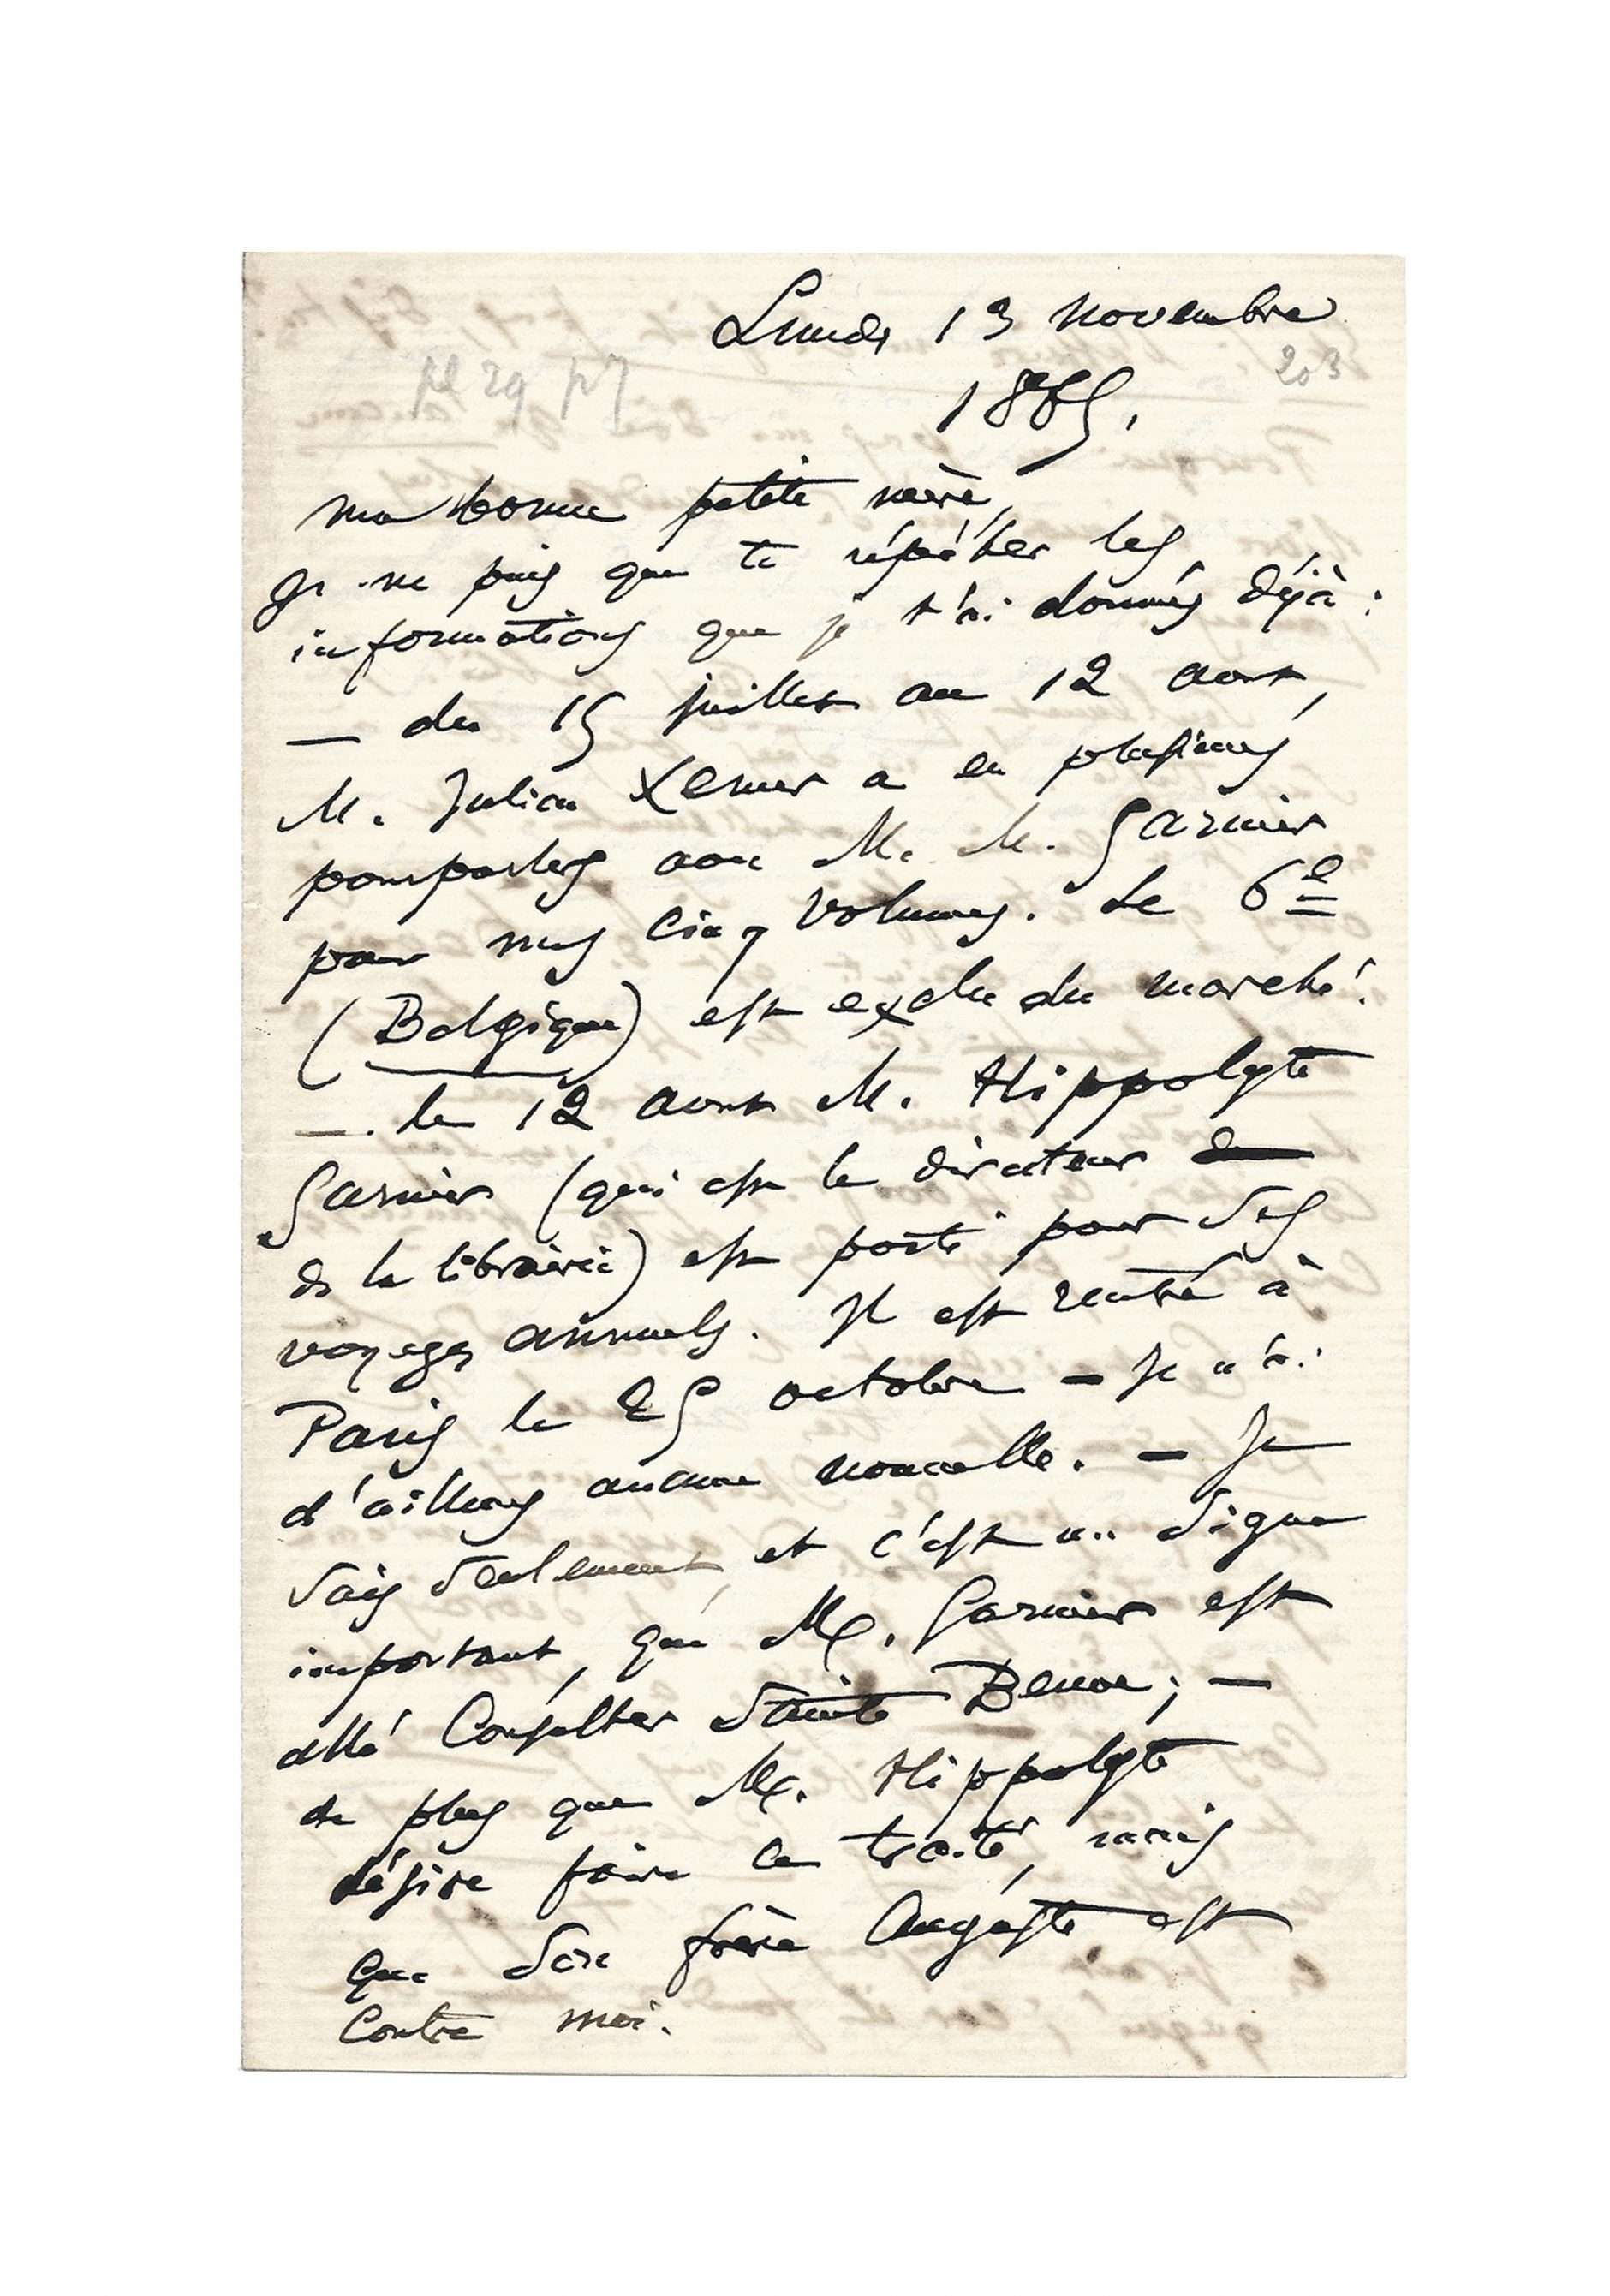 Lundi 13 novembre
203
pl 29 p7
1865.
Ma bonne petite mère,
Je ne puis que te répéter les
informations que je t'ai données déjà :
— du 15 juillet au 12 août,
M. Julien Lemer a eu plusieurs
pourparlers avec M. M. Garnier
pour mes cinq volumes. Le 6e
(Belgique) est exclu du marché.
— le 12 août M. Hippolyte
Garnier (qui est le directeur
de la librairie) est parti pour ses
voyages annuels. Il est rentré à
Paris le 25 octobre — Je n'ai
d'ailleurs aucune nouvelle. — Je
sais seulement, et c'est un signe
important, que M. Garnier est
allé consulter Sainte Beuve ; —
de plus que M. Hippolyte
désire faire ce traité, mais
que son frère Auguste est
contre moi.